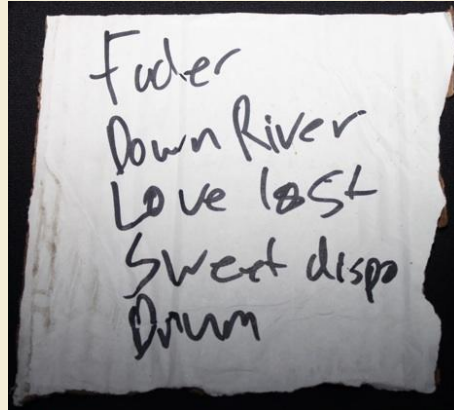 Fader
Down River
Love lost
Sweet dispo
Drum